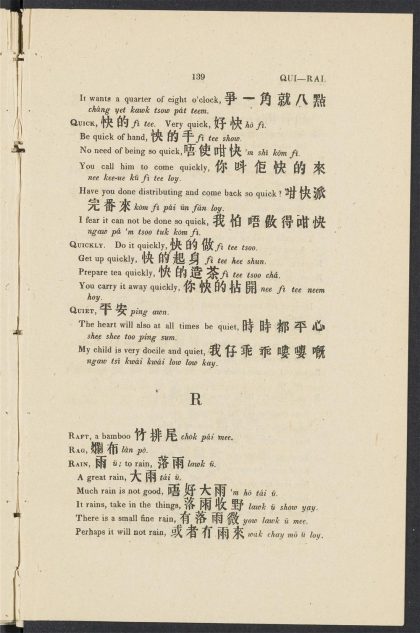 139 QUI—RAI.
It wants a quarter of eight o'clock, 爭一角就八點
chàng yet kawk tsow pàt teem.
QUICK, 快的 fì tee. Very quick, 好快 hò fì.
Be quick of hand, 快的手 fì tee show.
No need of being so quick, 唔使咁快 'm shì kòm fì.
You call him to come quickly, 你呌佢快的來
nee kee-ne kŭ fì tee loy.
Have you done distributing and come back so quick? 咁快派
完番來 kòm fì pài ùn fàn loy.
I fear it can not be done so quick, 我怕唔做得咁快
ngaw pà 'm tsoo tuk kòm fì.
QUICKLY. Do it quickly, 快的做 fì tee tsoo.
Get up quickly, 快的起身 fì tee hee shun.
Prepare tea quickly, 快的造茶 fì tee tsoo chá.
You carry it away quickly, 你快的拈開 nee fì tee neem
hoy.
QUIET, 平安 ping awn.
The heart will also at all times be quiet, 時時都平心
shee shee too ping sum.
My child is very docile and quiet, 我仔乖乖嘍嘍嘅
ngaw tsì kwài kwài low low kay.
R
RAFT, a bamboo 竹排尾 chòk pái mee.
RAG, 布 làn pò.
RAIN, 雨 ù; to rain, 落雨 lawk ù.
A great rain, 大雨 tái ù.
Much rain is not good, 唔好大雨 'm hò tái ù.
It rains, take in the things, 落雨收野 lawk ù show yay.
There is a small fine rain, 有落雨微 yow lawk ù mee.
Perhaps it will not rain, 或者冇雨來 wak chay mò ù loy.